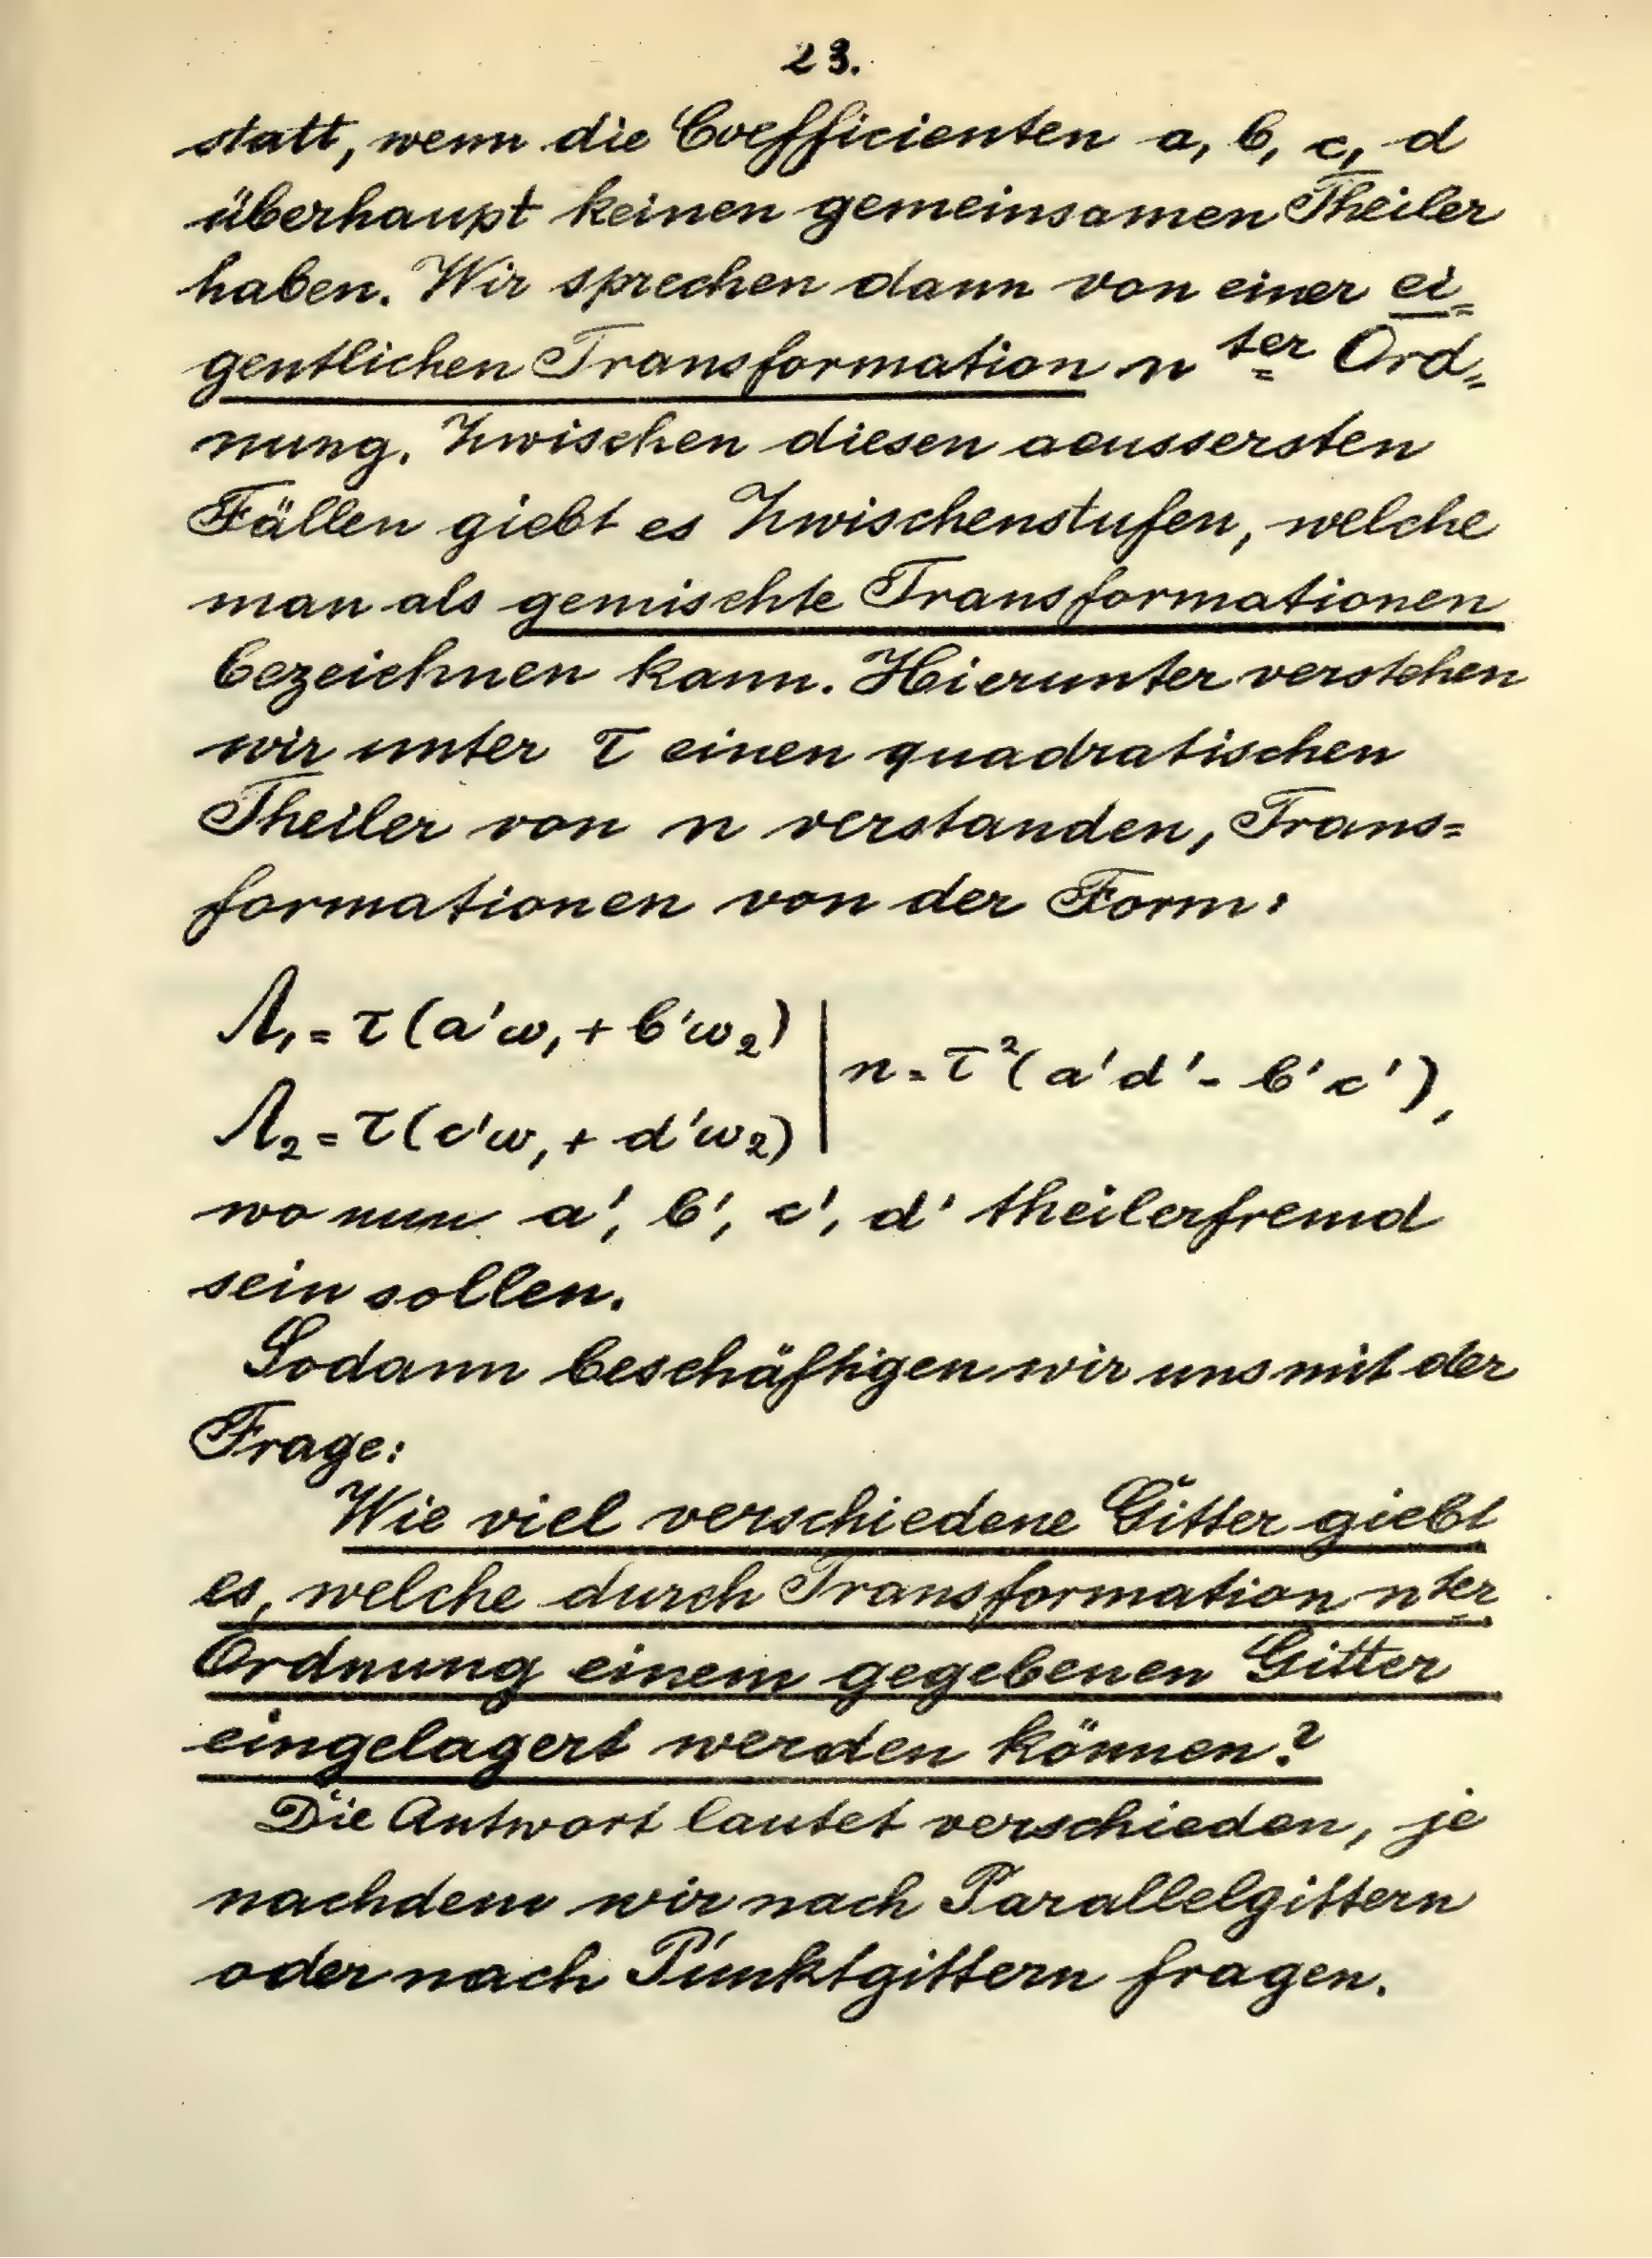 23.
statt, wenn die Coefficienten a, b, c, d
überhaupt keinen gemeinsamen Theiler
haben. Wir sprechen dann von einer ei=
gentlichen Transformation n ter Ord=
nung. Zwischen diesen aeussersten
Fällen giebt es Zwischenstufen, welche
man als gemischte Transformationen
bezeichnen kann. Hierunter verstehen
wir unter τ einen quadratischen
Theiler von n verstanden, Trans=
formationen von der Form:
Λ₁ = τ(a'ω₁ + b'ω₂)
n = τ²(a'd' - b'c'),
Λ₂ = τ(c'ω₁ + d'ω₂)
wo nun a', b', c', d' theilerfremd
sein sollen.
Sodann beschäftigen wir uns mit der
Frage:
Wie viel verschiedene Gitter giebt
es, welche durch Transformation nter
Ordnung einem gegebenen Gitter
eingelagert werden können?
Die Antwort lautet verschieden, je
nachdem wir nach Parallelgittern
oder nach Punktgittern fragen.